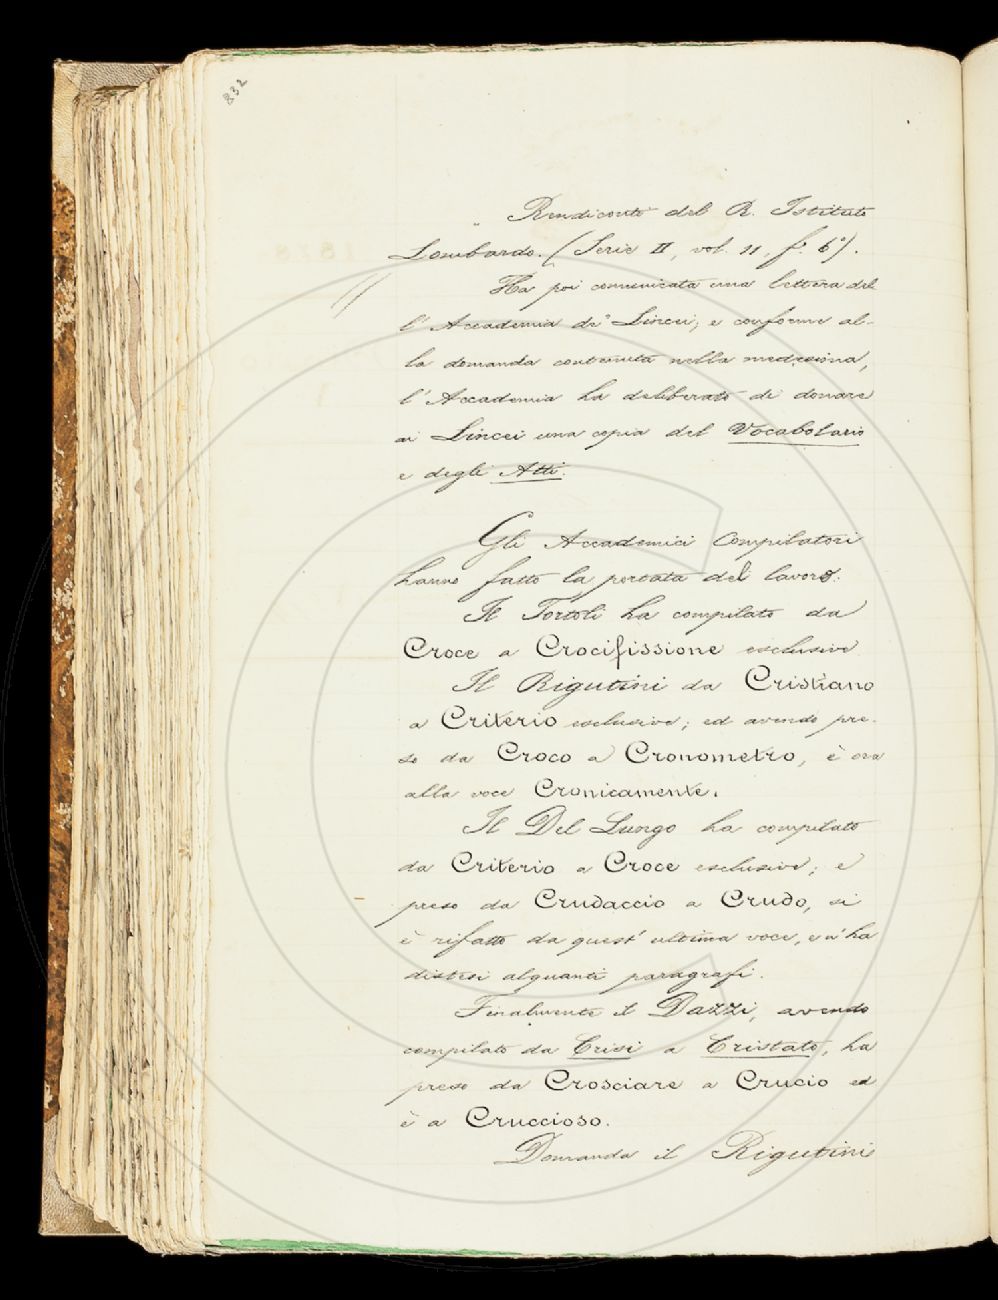 832
Rendiconto del R. Istituto
Lombardo. (Serie II, vol. 11, f.º 6º).
Ha poi comunicata una lettera del
l'Accademia de' Lincei; e conforme al-
la domanda contenuta nella medesima,
l'Accademia ha deliberato di donare
ai Lincei una copia del Vocabolario
e degli Atti.
Gli Accademici Compilatori
hanno fatto la portata del lavoro.
Il Tortoli ha compilato da
Croce a Crocifissione esclusive
Il Rigutini da Cristiano
a Criterio esclusive; ed avendo pre-
so da Croco a Cronometro, è ora
alla voce Cronicamente.
Il Del Lungo ha compilato
da Criterio a Croce esclusive; e
preso da Crudaccio a Crudo, si
è rifatto da quest'ultima voce, e n'ha
distesi alquanti paragrafi.
Finalmente il Dazzi, avendo
compilato da Crisi a Cristato, ha
preso da Crosciare a Crucio ed
è a Cruccioso.
Domanda il Rigutini